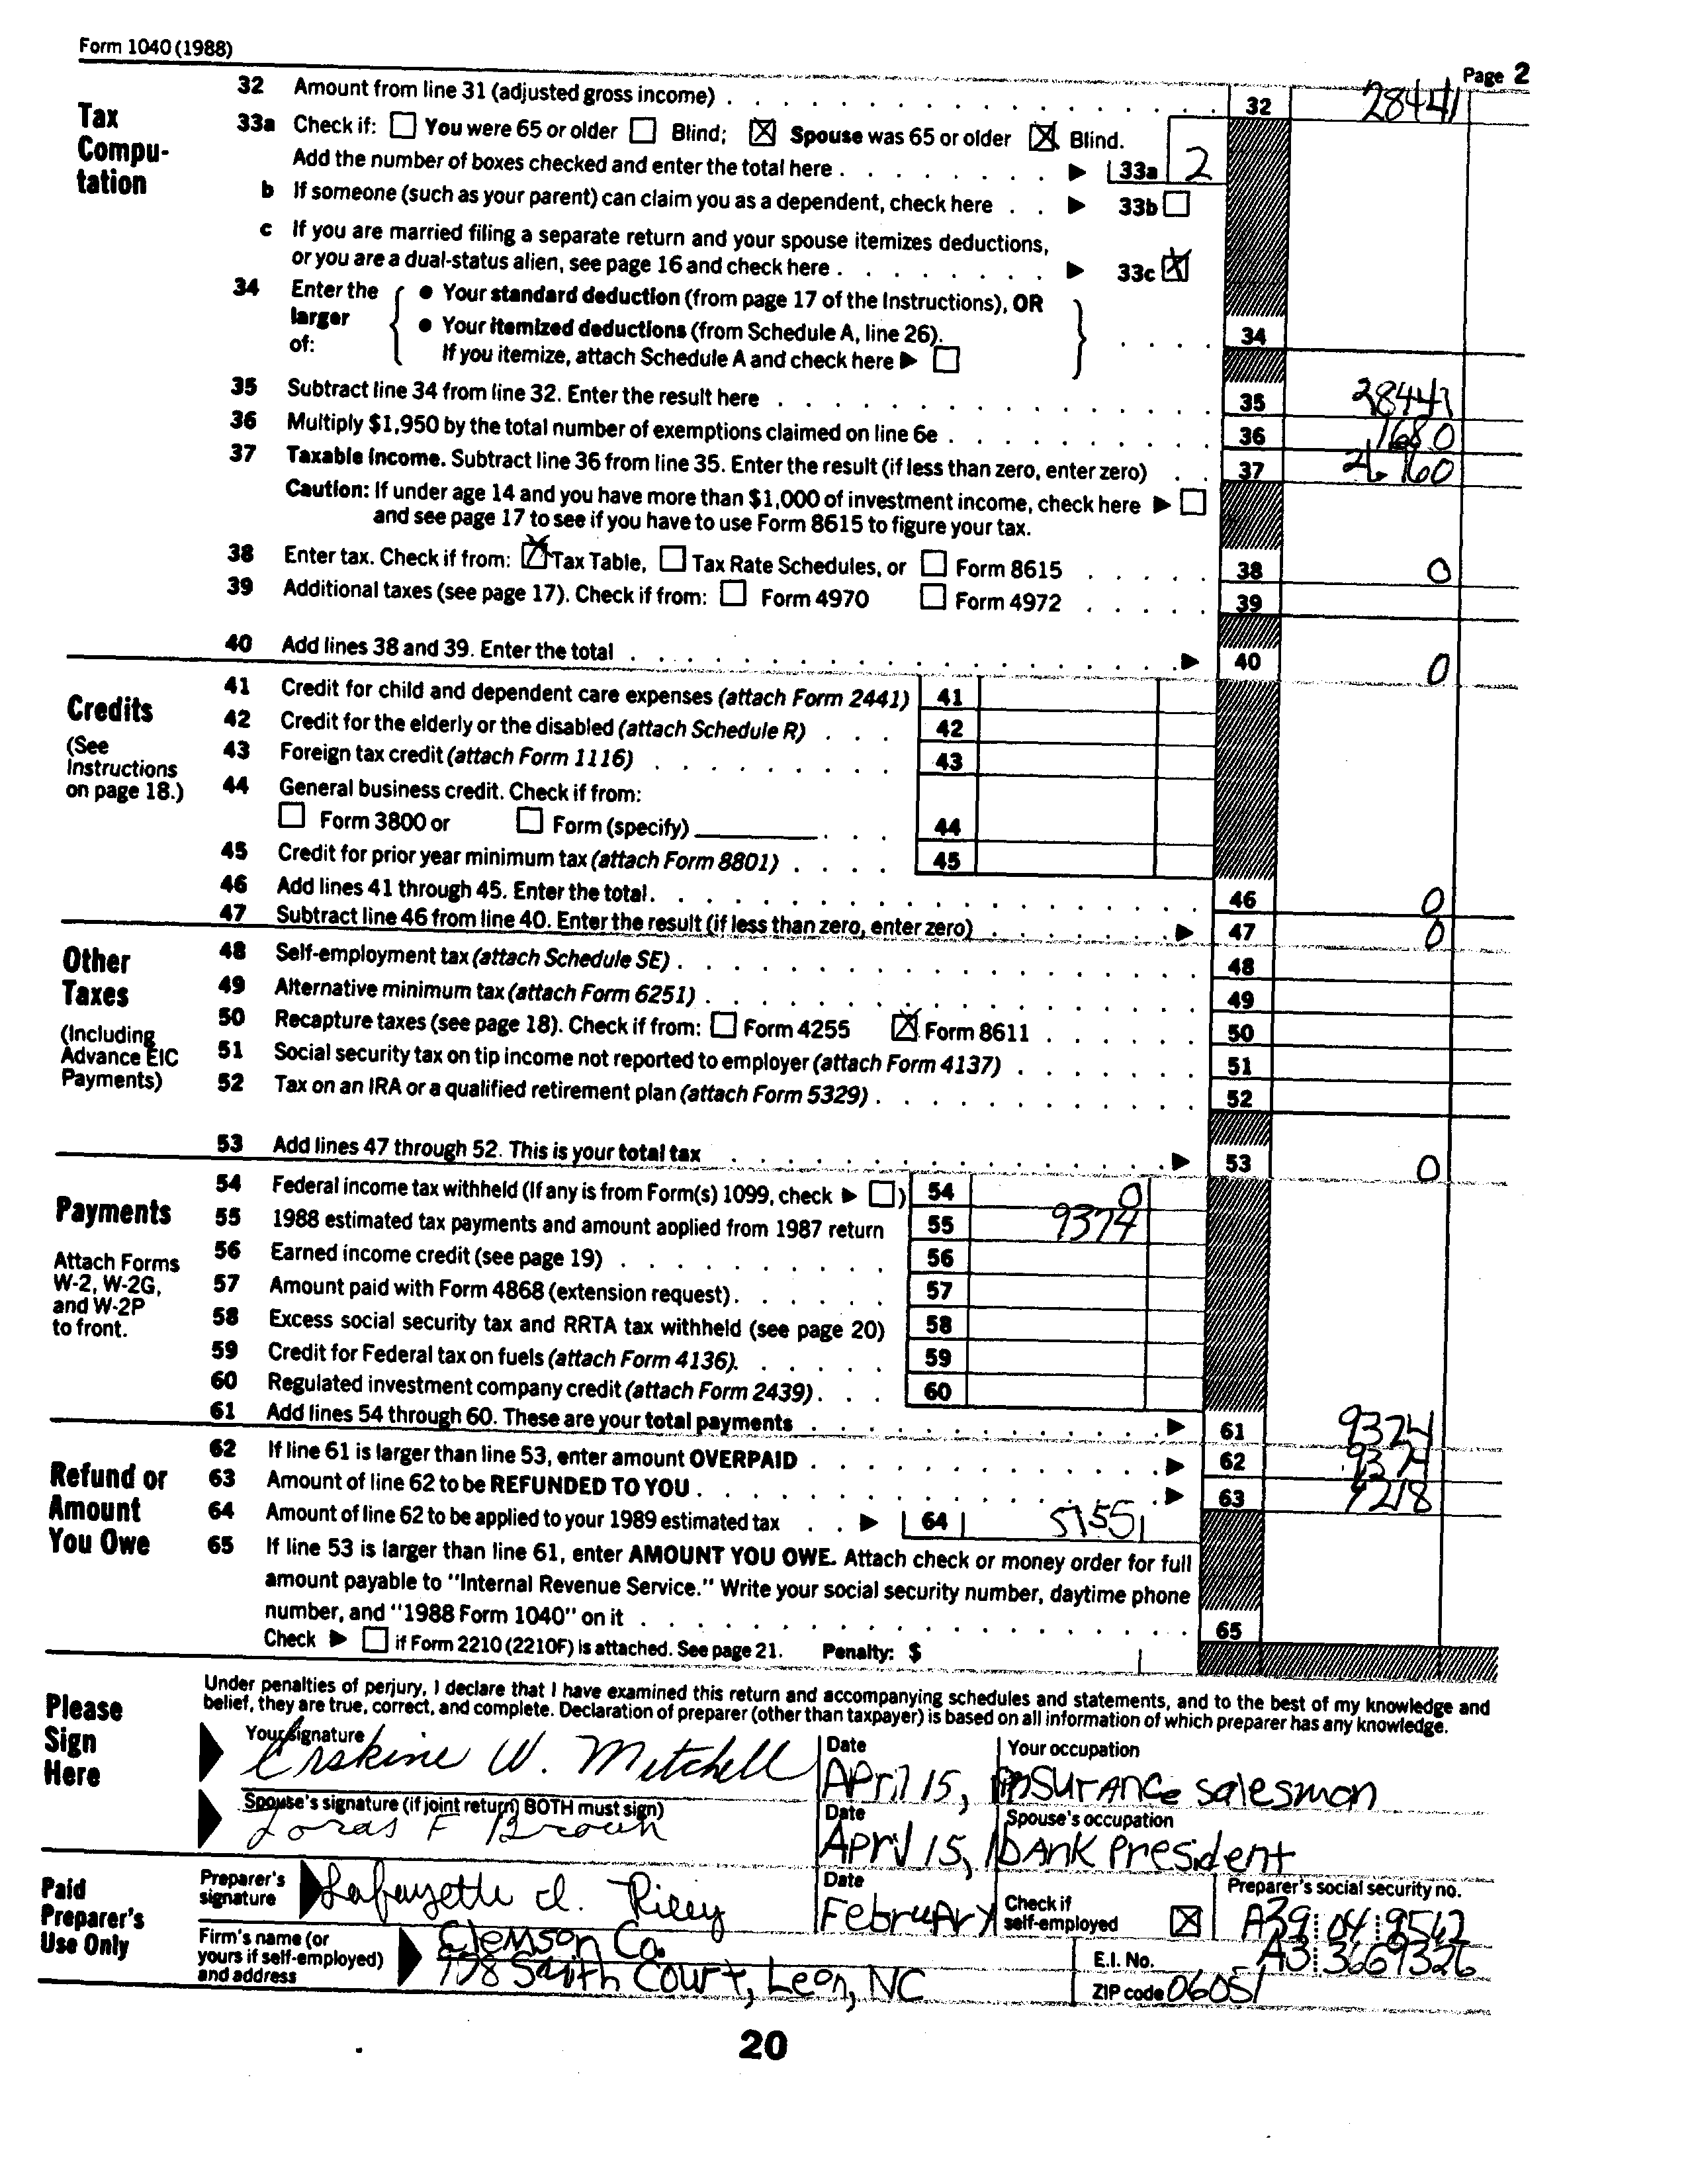 Form 1040 (1988)
Page 2
Tax Compu-tation
32 Amount from line 31 (adjusted gross income) 32 28441
33a Check if: You were 65 or older Blind; Spouse was 65 or older Blind.
Add the number of boxes checked and enter the total here 33a 2
b If someone (such as your parent) can claim you as a dependent, check here 33b
c If you are married filing a separate return and your spouse itemizes deductions,
or you are a dual-status alien, see page 16 and check here 33c
34 Enter the larger of:
• Your standard deduction (from page 17 of the Instructions), OR
• Your itemized deductions (from Schedule A, line 26). 34
If you itemize, attach Schedule A and check here
35 Subtract line 34 from line 32. Enter the result here 35 28441
36 Multiply $1,950 by the total number of exemptions claimed on line 6e 36 1680
37 Taxable income. Subtract line 36 from line 35. Enter the result (if less than zero, enter zero) 37 26760
Caution: If under age 14 and you have more than $1,000 of investment income, check here
and see page 17 to see if you have to use Form 8615 to figure your tax.
38 Enter tax. Check if from: Tax Table, Tax Rate Schedules, or Form 8615 38 0
39 Additional taxes (see page 17). Check if from: Form 4970 Form 4972 39
40 Add lines 38 and 39. Enter the total 40 0
Credits
(See Instructions on page 18.)
41 Credit for child and dependent care expenses (attach Form 2441) 41
42 Credit for the elderly or the disabled (attach Schedule R) 42
43 Foreign tax credit (attach Form 1116) 43
44 General business credit. Check if from:
Form 3800 or Form (specify) 44
45 Credit for prior year minimum tax (attach Form 8801) 45
46 Add lines 41 through 45. Enter the total. 46 0
47 Subtract line 46 from line 40. Enter the result (if less than zero, enter zero) 47 0
Other Taxes
(Including Advance EIC Payments)
48 Self-employment tax (attach Schedule SE) 48
49 Alternative minimum tax (attach Form 6251) 49
50 Recapture taxes (see page 18). Check if from: Form 4255 Form 8611 50
51 Social security tax on tip income not reported to employer (attach Form 4137) 51
52 Tax on an IRA or a qualified retirement plan (attach Form 5329) 52
53 Add lines 47 through 52. This is your total tax 53 0
Payments
Attach Forms W-2, W-2G, and W-2P to front.
54 Federal income tax withheld (If any is from Form(s) 1099, check ) 54 0
55 1988 estimated tax payments and amount applied from 1987 return 55 9374
56 Earned income credit (see page 19) 56
57 Amount paid with Form 4868 (extension request) 57
58 Excess social security tax and RRTA tax withheld (see page 20) 58
59 Credit for Federal tax on fuels (attach Form 4136). 59
60 Regulated investment company credit (attach Form 2439) 60
61 Add lines 54 through 60. These are your total payments 61 9374
Refund or Amount You Owe
62 If line 61 is larger than line 53, enter amount OVERPAID 62 9374
63 Amount of line 62 to be REFUNDED TO YOU 63 4218
64 Amount of line 62 to be applied to your 1989 estimated tax 64 5155
65 If line 53 is larger than line 61, enter AMOUNT YOU OWE. Attach check or money order for full
amount payable to "Internal Revenue Service." Write your social security number, daytime phone
number, and "1988 Form 1040" on it 65
Check if Form 2210 (2210F) is attached. See page 21. Penalty: $
Please Sign Here
Under penalties of perjury, I declare that I have examined this return and accompanying schedules and statements, and to the best of my knowledge and
belief, they are true, correct, and complete. Declaration of preparer (other than taxpayer) is based on all information of which preparer has any knowledge.
Your signature Date Your occupation
Erskine W. Mitchell April 15, insurance salesman
Spouse's signature (if joint return) BOTH must sign) Date Spouse's occupation
Loras F Brown April 15, bank president
Paid Preparer's Use Only
Preparer's signature Lafayette d. Riley Date February Check if self-employed Preparer's social security no. A39 04 9562
Firm's name (or yours if self-employed) and address Clemson Co. E.I. No. A3 3669326
Saith Court, Leon, NC ZIP code 06051
20